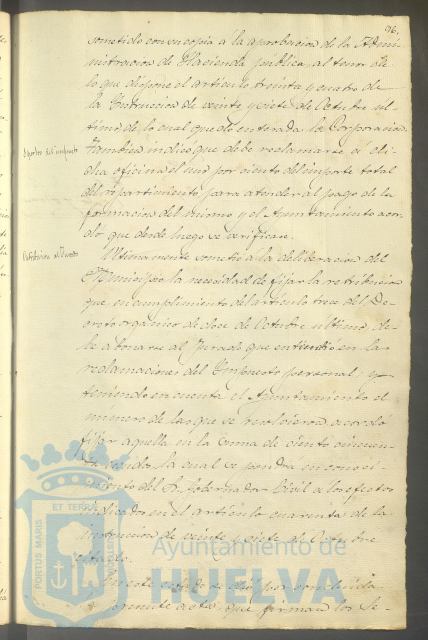 96,
sometido con su copia á la aprobacion de la Admi-
nistracion de Hacienda pública, al tenor de
lo que dispone el artículo treinta y cuatro de
la Instruccion de veinte y siete de Octubre úl-
timo, de lo cual quedó enterada la Corporacion.
Tambien indicó que debe reclamarse á di-
cha oficina el uno por ciento del importe total
del repartimiento para atender al pago de la
formacion del mismo y el Ayuntamiento acor-
dó que desde luego se verificase.
Retribucion al Jurado
Ultimamente sometió á la deliberacion del
Municipio la necesidad de fijar la retribucion
que en cumplimiento del artículo trece del De-
creto orgánico de doce de Octubre último, de-
be abonarse al Jurado que entiendió en las
reclamaciones del Impuesto personal y
teniendo en cuenta el Ayuntamiento el
número de las que se resolvieron, acordó
fijar aquella en la suma de ciento cincuen-
ta escudos, la cual se pondrá en conoci-
miento del Sr. Gobernador Civil á los efectos
indicados en el artículo cuarenta de la
instruccion de veinte y siete de Octubre
citado.
En este estado se dió por concluida
la presente acta que firman los Se-
PORTUS MARIS ET TERRAE CUSTODIA
Ayuntamiento de
HUELVA